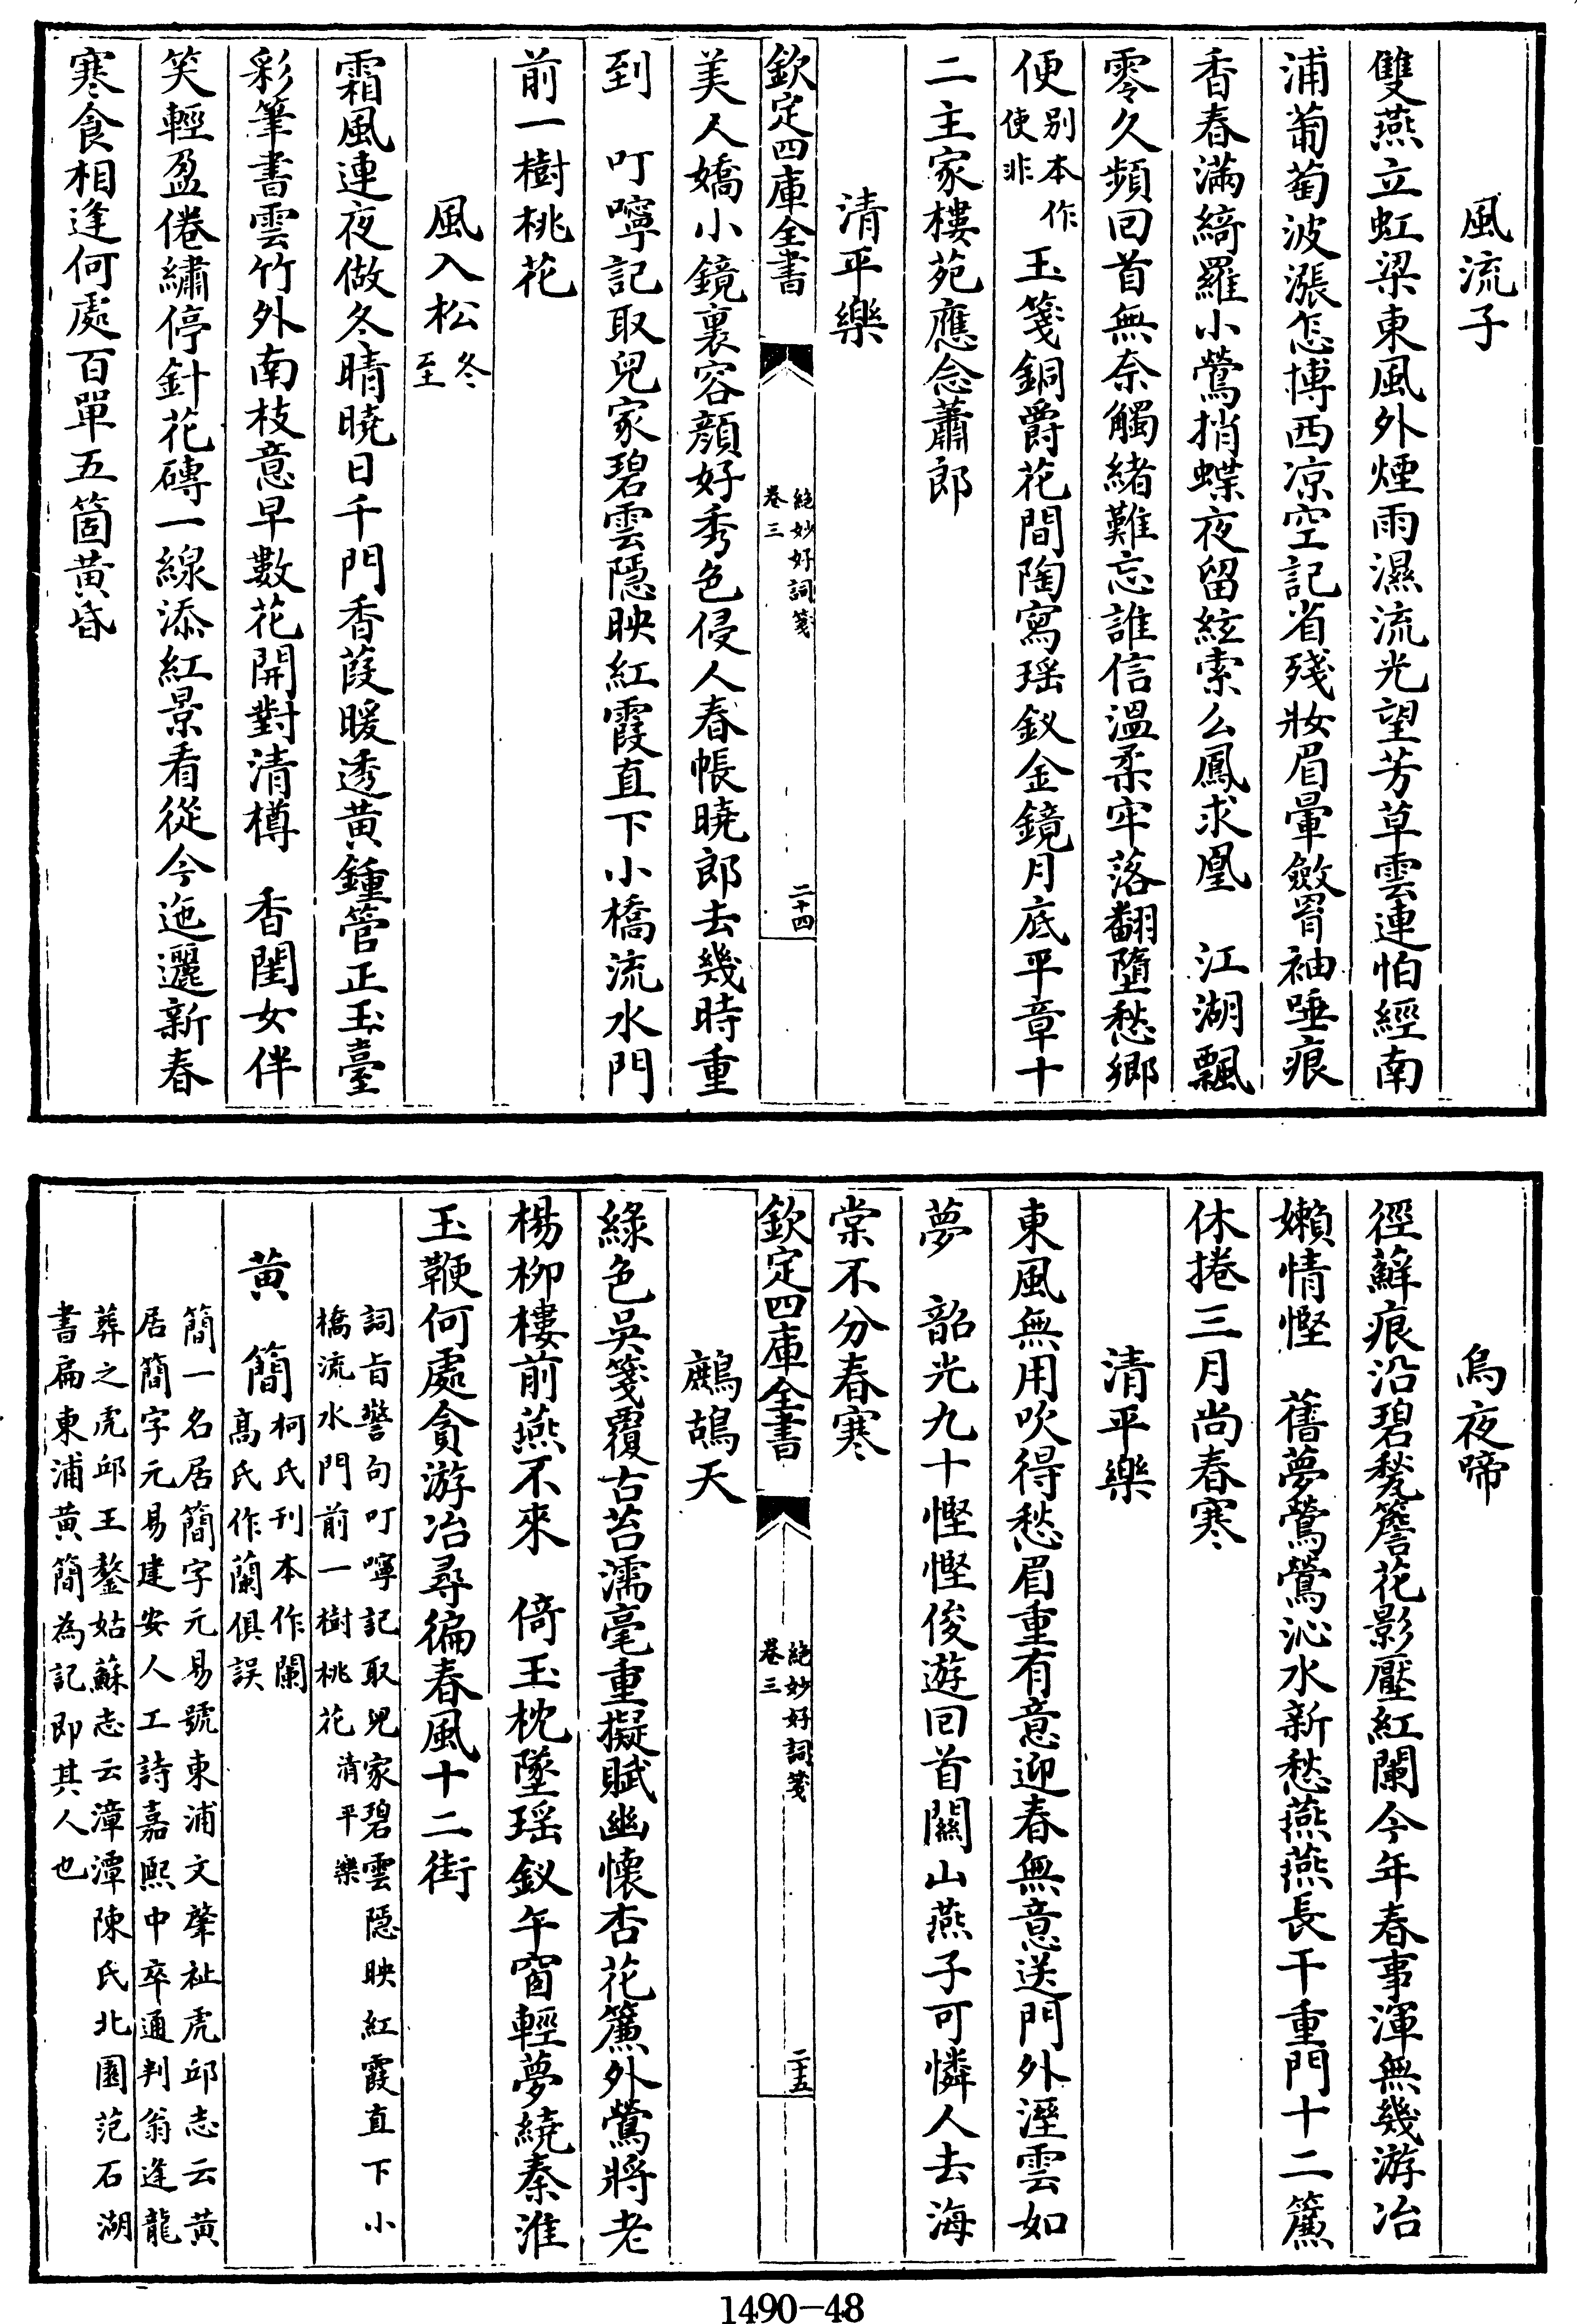 風流子
雙燕立虹梁東風外煙雨濕流光望芳草雲連怕經南
浦葡萄波漲怎博西凉空記省殘妝眉暈斂罥袖唾痕
香春滿綺羅小鶯捎蝶夜留絃索么鳳求凰　江湖飄
零久頻回首無奈觸緒難忘誰信溫柔牢落翻墮愁鄉
便别本作使非　玉箋銅爵花間陶寫瑶釵金鏡月底平章十
二主家樓苑應念蕭郎
清平樂
欽定四庫全書
絶妙好詞箋
卷三
二十四
美人嬌小鏡裏容顔好秀色侵人春帳曉郎去幾時重
到　叮嚀記取兒家碧雲隱映紅霞直下小橋流水門
前一樹桃花
風入松冬至
霜風連夜做冬晴曉日千門香葭暖透黄鍾管正玉臺
彩筆書雲竹外南枝意早數花開對清樽　香閨女伴
笑輕盈倦繡停針花磚一線添紅景看從今迤邐新春
寒食相逢何處百單五箇黄昏
烏夜啼
徑蘚痕沿碧甃簷花影壓紅闌今年春事渾無幾游冶
嬾情慳　舊夢鶯鶯沁水新愁燕燕長干重門十二簾
休捲三月尚春寒
清平樂
東風無用吹得愁眉重有意迎春無意送門外溼雲如
夢　韶光九十慳慳俊遊回首關山燕子可憐人去海
棠不分春寒
欽定四庫全書
絶妙好詞箋
卷三
二十五
鷓鴣天
綠色吳箋覆古苔濡毫重擬賦幽懷杏花簾外鶯將老
楊柳樓前燕不來　倚玉枕墜瑶釵午窗輕夢繞秦淮
玉鞭何處貪游冶尋徧春風十二街
詞旨警句叮嚀記取兒家碧雲隱映紅霞直下小
橋流水門前一樹桃花清平樂
黄　簡柯氏刊本作闌高氏作蘭俱誤
簡一名居簡字元易號東浦文肇祉虎邱志云黄
居簡字元易建安人工詩嘉熙中卒通判翁逢龍
葬之虎邱王鏊姑蘇志云漳潭陳氏北園范石湖
書扁東浦黄簡為記即其人也
1490-48